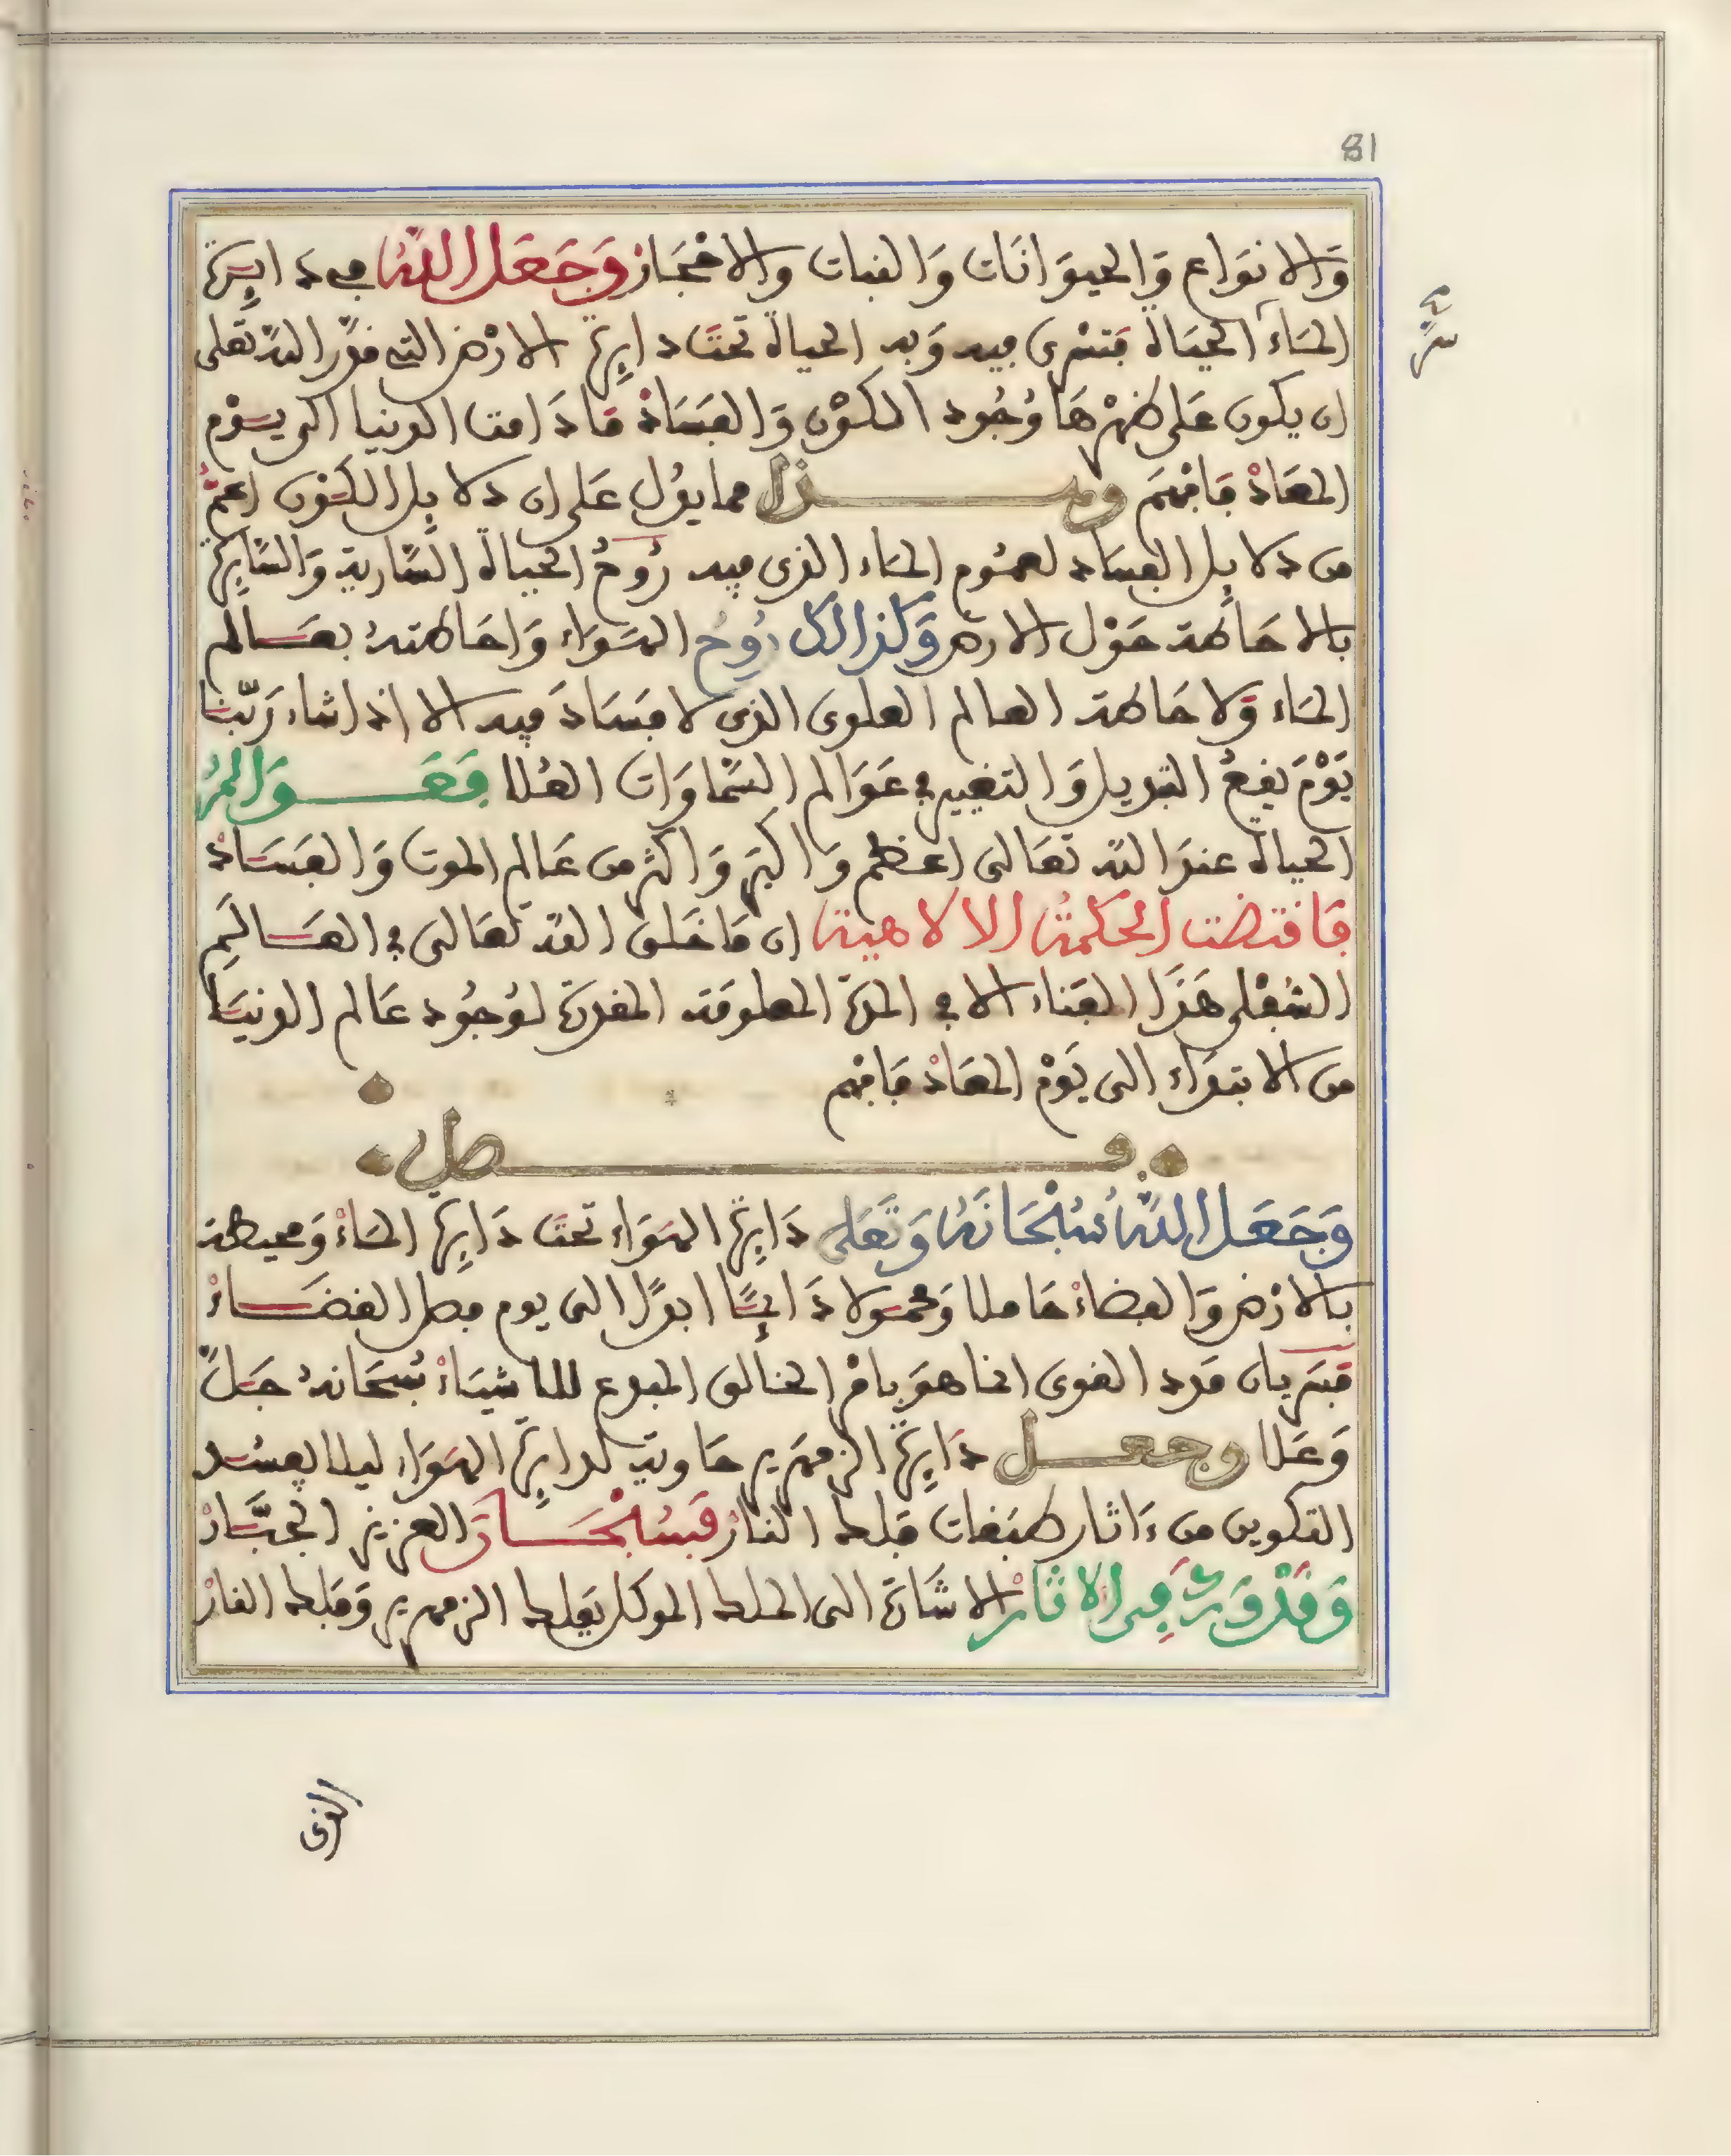 81
وَالانوَاع وَالحيوَانَات وَالنبات والاحْجَار وَجَعَل اللهُ في دَايِرة
المَاء الحيَاة فتسْرى فيه وَبه الحياة تحتَ دايِرة الارْض التى قدَّر الله تعلى
ان يكون عَلى ظهْرهَا وُجُود الكوْن وَالفسَادْ مَا دَامت الدنيا الى يوْم
المعَادْ فَافهَم وهذا مما يدُل عَلى ان دلايِل الكوْن اعمّ
من دلايِل الفسَاد لعمُوم المَاء الذى فيه رُوحُ الحياة السَّارية وَالسَّايِرة
بالاحَاطة حَوْل الارض وَكذالك رُوحُ الهوَاء وَاحَاطتهُ بعَالم
المَاء وَلاحَاطة العالم العلوى الذى لا فسَادَ فيه الا اذا شاء رَبّنا
يَوْمَ يقعُ التبديل وَالتغيير في عَوَالم السَّمَاوَات العُلا فعَوَالمُ
الحياة عندَ الله تعَالى اعظم وَاكبَر وَاكثر من عَالم الموت وَالفسَادْ
فَاقتضت الحكمةُ الالاهية ان مَا خَلق الله تعَالى في العَالَم
السُّفْلى هَذَا الفنَاء الا في المدّة المعلومَة المقدرَة لوُجُود عَالم الدنيَا
من الابتدَاء الى يَوْم المعَادْ فَافهم
فصل
وَجَعَل اللهُ سُبْحَانَهُ وَتَعَلى دَايِرة الهوَاء تحتَ دَايِرة المَاءْ وَمحيطة
بالارْض وَالفضَاءْ حَاملا وَمحمُولا دَايمًا ابدًا الى يوم فصل القضَاءْ
فسَريان مَدد القوى انما هوَ بامْر الخالق المبدع للاشيَاءْ سُبحَانهُ جَلَّ
وَعَلا وجعل دَايِرةَ الزمهَرير حَاوية لدايِرة الهوَاء ليلا يفسُد
التكوين من ءَاثار طبَقات فلك النارْ فَسُبْحَانَ العزيز الجبَّارْ
وَقَدْ وَرَدَ فِى الاثَارْ الاشَارة الى الملك الموكل بفلك الزمهرير وَفلك النارْ
الذى